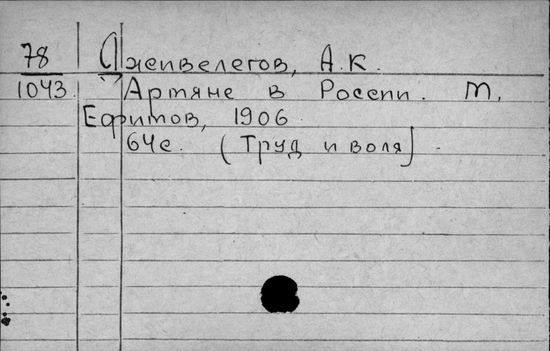 78 Дживелегов, А.К.
1043 Артяне в России. М,
Ефимов, 1906
64с. (Труд и воля)